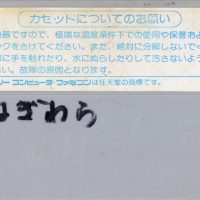 カセットについてのお願い
機器ですので、極端な温度条件下での使用や保管およ
ックをさけてください。また、絶対に分解しないでく
部に手を触れたり、水にぬらしたりして汚さないよう
い。故障の原因となります。
リー コンピュータ・ファミコンは任天堂の商標です。
はぎわら